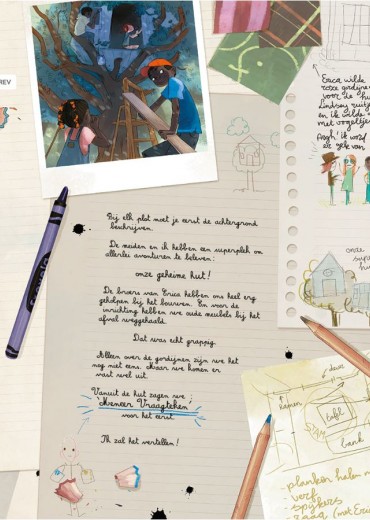 REV
Erica wilde
roze gordijnen
voor de hut
Lindsey ruitjes
en ik wilde
met vogeltjes
Aagh! Ik word
er gek van
Bij elk plot moet je eerst de achtergrond
beschrijven.
De meiden en ik hebben een superplek om
allerlei avonturen te beleven:
onze geheime hut!
De broers van Erica hebben ons heel erg
geholpen bij het bouwen. En voor de
inrichting hebben we oude meubels bij het
afval weggehaald.
Dat was echt grappig.
Alleen over de gordijnen zijn we het
nog niet eens. Maar we komen er
vast wel uit.
Vanuit de hut zagen we
Meneer Vraagteken
voor het eerst.
Ik zal het vertellen!
onze
super
hut
deur
ramen
tafel
STAM
bank
- planken halen
- verf
- spijkers
- zaag (met Eric